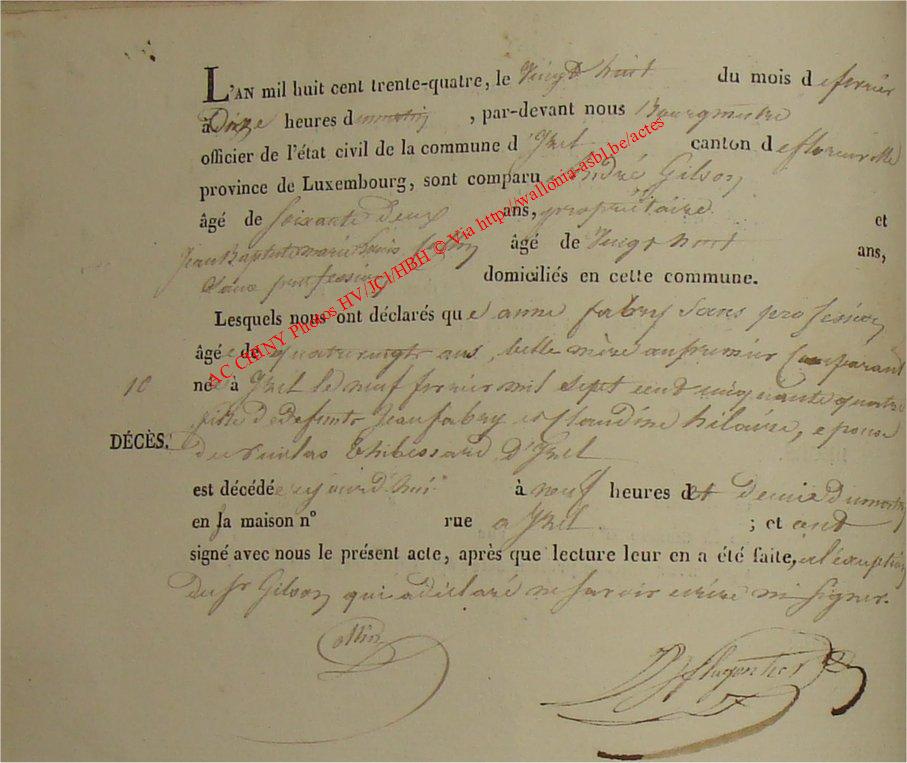 L'AN mil huit cent trente-quatre, le Vingt huit du mois de fevrier
à Onze heures du matin, par-devant nous Bourgmestre
officier de l'état civil de la commune d'Izel canton de florenville
province de Luxembourg, sont comparu andré Gilson
âgé de Soixante Deux ans, propriétaire et
Jean Baptiste marie Louis âgé de Vingt huit ans,
Sans profession domiciliés en cette commune.
Lesquels nous ont déclarés que anne fabry Sans profession
âgée de quatrevingts ans, belle mère au premier Comparant
10 née à Izel le neuf fevrier mil sept cent cinquante quatre
fille de defunts Jean fabry et Claudine hilaire, epouse
DÉCÈS.
de Nicolas thibessard d'Izel
est décédée cejourd'hui à neuf heures et demie du matin
en sa maison n° rue a Izel ; et ont
signé avec nous le présent acte, après que lecture leur en a été faite, a l'exception
du Sr Gilson qui a déclaré ne savoir ecrire ni signer.
AC CHINY Photos HV/JCl/HBH © Via http://wallonia-asbl.be/actes